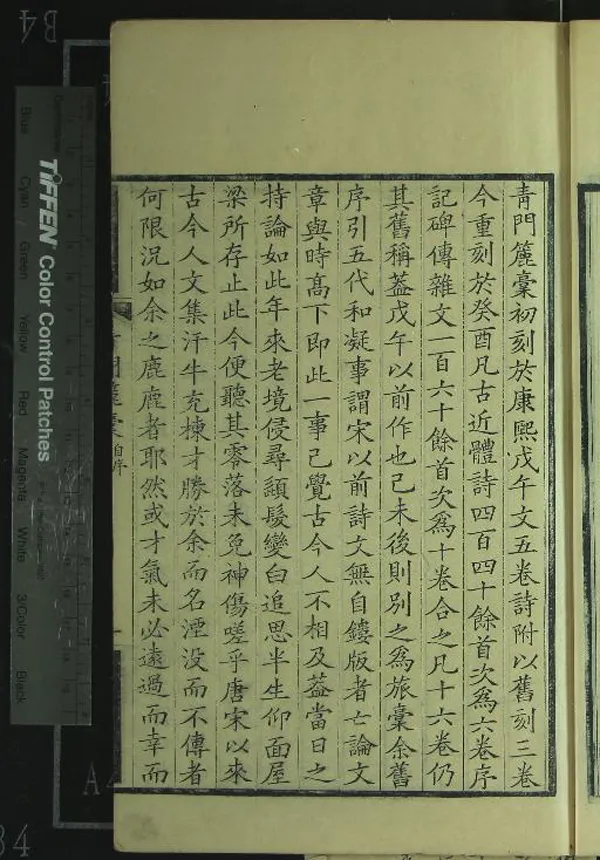 青門簏稾初刻於康熙戊午文五卷詩附以舊刻三卷
今重刻於癸酉凡古近體詩四百四十餘首次為六卷序
記碑傳雜文一百六十餘首次為十卷合之凡十六卷仍
其舊稱葢戊午以前作也己未後則別之為旅稾余舊
序引五代和凝事謂宋以前詩文無自鏤版者七論文
章與時高下即此一事已覺古今人不相及葢當日之
持論如此年來老境侵尋鬚髮變白追思半生仰面屋
梁所存止此今便聽其零落未免神傷嗟乎唐宋以來
古今人文集汗牛充棟才勝於余而名湮没而不傳者
何限況如余之鹿鹿者耶然或才氣未必遠過而幸而
門簏稾
自序
一
TIFFEN Color Control Patches
Blue
Cyan
Green
Yellow
Red
Magenta
White
3/Color
Black
B4
A4
B4